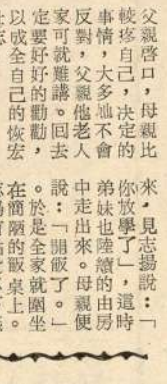 父親啓口，母親比
較疼自己，決定的
事情，大多她不會
反對，父親他老人
家可就難講。回去
定要好好的勸勸，
以成全自己的恢宏
來，見志揚說：「
你放學了」，這時
弟妹也陸續的由房
中走出來。母親便
說：「開飯了。」
。於是全家就圍坐
在簡陋的飯桌上。